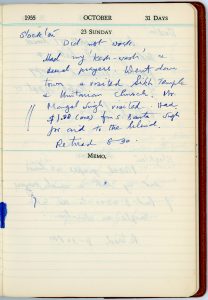 1955 OCTOBER 31 DAYS
23 SUNDAY
Did not work.
Had my 'Kesh-wash' &
usual prayers. Went down
town & visited Sikh Temple
& Unitarian Church. Mr
Mangal Singh visited. Had
for aid to the blind.
Retired 8-30.
MEMO.